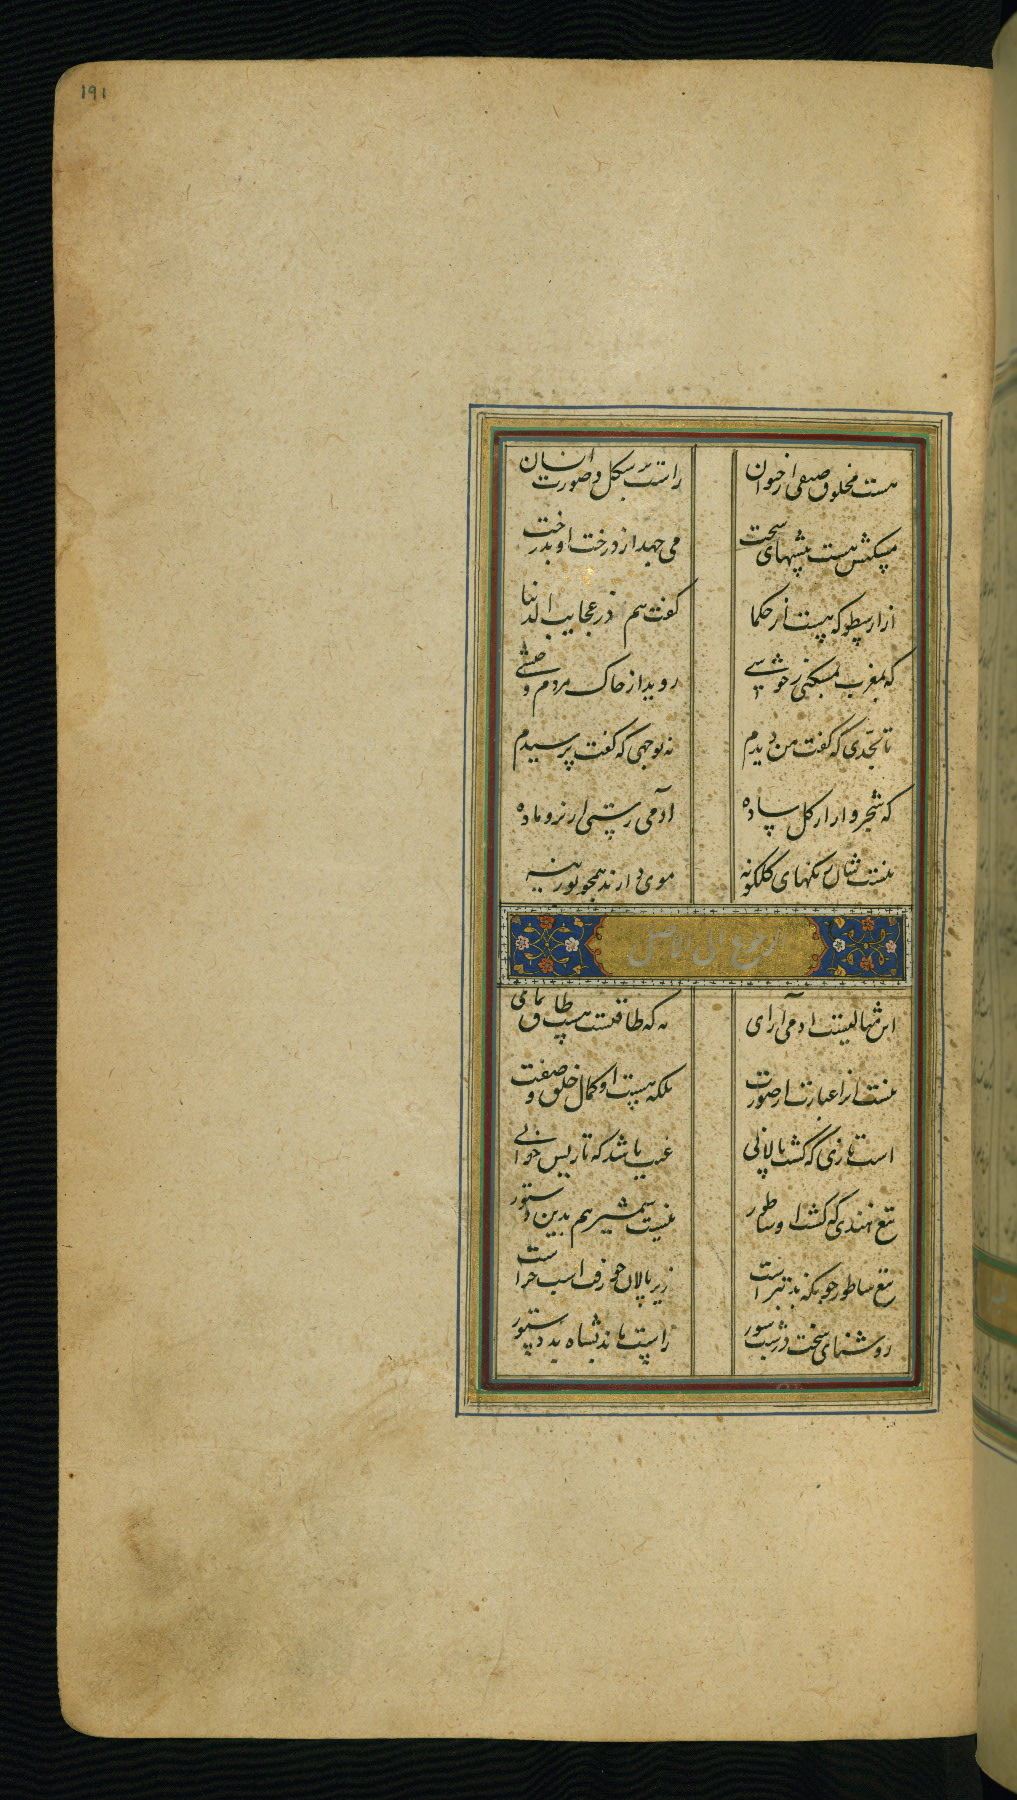 ۱۹۱
هست مخلوق صنفی از حیوان
راست بر شکل و صورت انسان
مسکنش هست بیشهای سخت
می جهد از درخت او بدرخت
از ارسطو که هست از حکما
گفت هم در عجایب الدنیا
که بمغرب
روید از خاک مردم وحشی
تا بحدی که گفت من دیدم
نه بوجهی که گفت پرسیدم
که شجروار از گل ساده
آدمی رستی از نر و ماده
نیست شان رنگهای گلگونه
موی دارند همچو بوزینه
ارجوع الی الاصل
این مثالیست آدمی آرای
نه که طاقست
نیست آنرا عبارت از صورت
بلکه هست او کمال خلق و صفت
است تازی که گشت پالانی
عیب باشد که تازیش خوانی
تیغ هندی که گشت او ساطور
نیست شمشیر هم بدین دستور
تیغ ساطور جو بکند بدتر است
زیر پالان جو رفت اسب خر است
روشنمای سخت در شب
راست ماند بشاه بد دستور